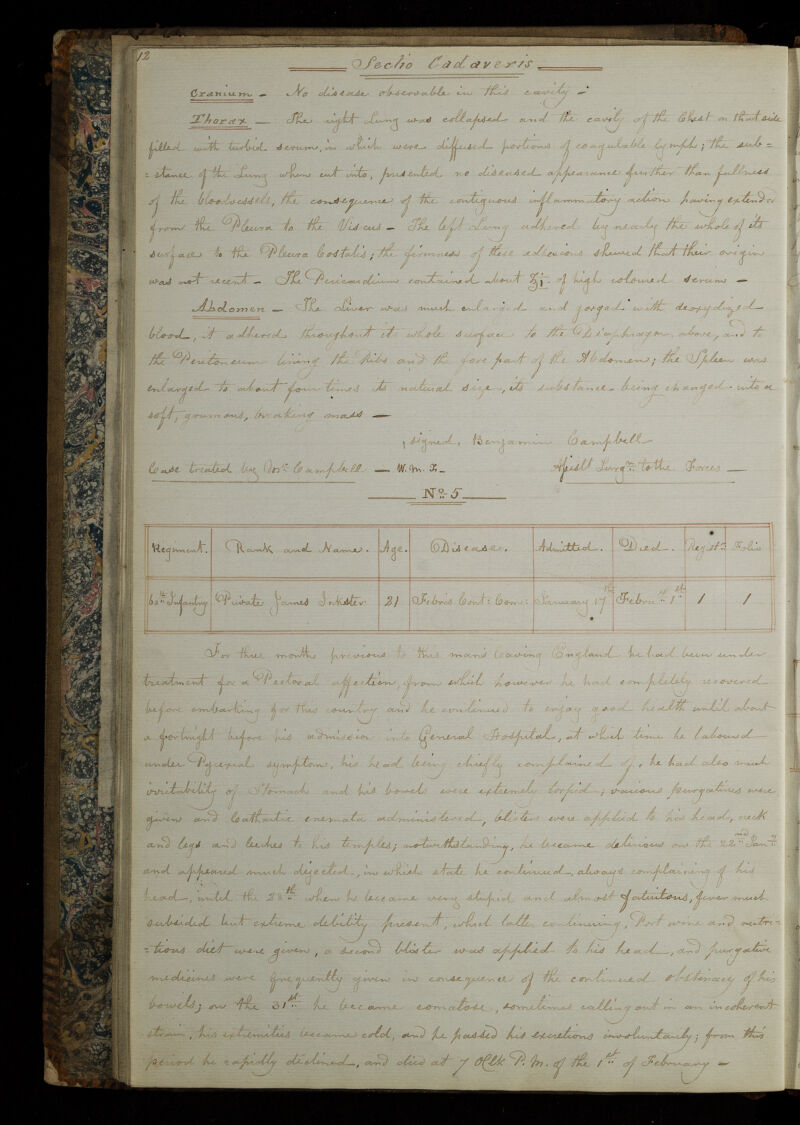 12
Sectio Cadaveris
Cranium - No disease observable in this cavity -
Thorax - The right Lung was collapsed and the cavity of the Chest on that side
filled with turbid serum, in which were diffused portions of coagulable lymph; the sub=
=stance of the Lung when cut into, presented no diseased appearance further than fullness
of the bloodvessels, the consequence of the contiguous inflammatory action having extended
from the Pleura to the Viscus - The left Lung adhered by nearly the whole of its
surface to the Pleura Costalis; the firmness of these adhesions shewed that their origin
was not recent - The Pericardium contained about ℥i of high coloured serum -
Abdomen - The Liver was much enlarged and gorged with deoxydized
blood, it adhered throughout its whole surface to the Diaphragm above, and to
the Peritoneum lining the Ribs and the fore part of the Abdomen; the Spleen was
enlarged to about four times its natural size, its substance being changed into a
soft, grumous, breaking mass -
signed, Benjamin Campbell
Case treated by Dor. Campbell - W. m. F -
Assist Surgn. to the Forces -
No. 5
Regiment. Rank and Name. Age. Disease. Admitted. Died. Registr. Folio
Infantry Private James Inkster 21 Febris Cont: Com: January 17th Februy 1st 1 1
For three months previous to this man's leaving England he had been under
treatment for a Pectoral affection, from which however he had completely recovered
before embarking for this country and he continued to enjoy good health until about
a fortnight before his admission into General Hospital, at which time he laboured
under Pyrexial symptoms, his head being chiefly complained of, he had also much
irritability of Stomach and his bowels were extremely torpid; various purgatives were
given and Cathartic enemata administered, blisters were applied to his head, neck
and legs and leeches to his temples; notwithstanding, he became delirious on the 22nd Jany
and appeared much dejected, in which state he continued, always complaining of his
head, until the 28th when he became very stupid and almost fatuitous, fever much
subsided but extreme debility present, which latter continuing, Port wine and nutri=
=tious diet were given, a second blister was applied to his head, and purgative
medicines were frequently given in consequence of the continued obstinacy of his
bowels; on the 31st he became comatose, sometimes calling out in an incoherent
strain, his extremities became cold, and he passed his excretions involuntarily; from this
period he rapidly declined, and died at 7 OClk P. M. of the 1st of February -